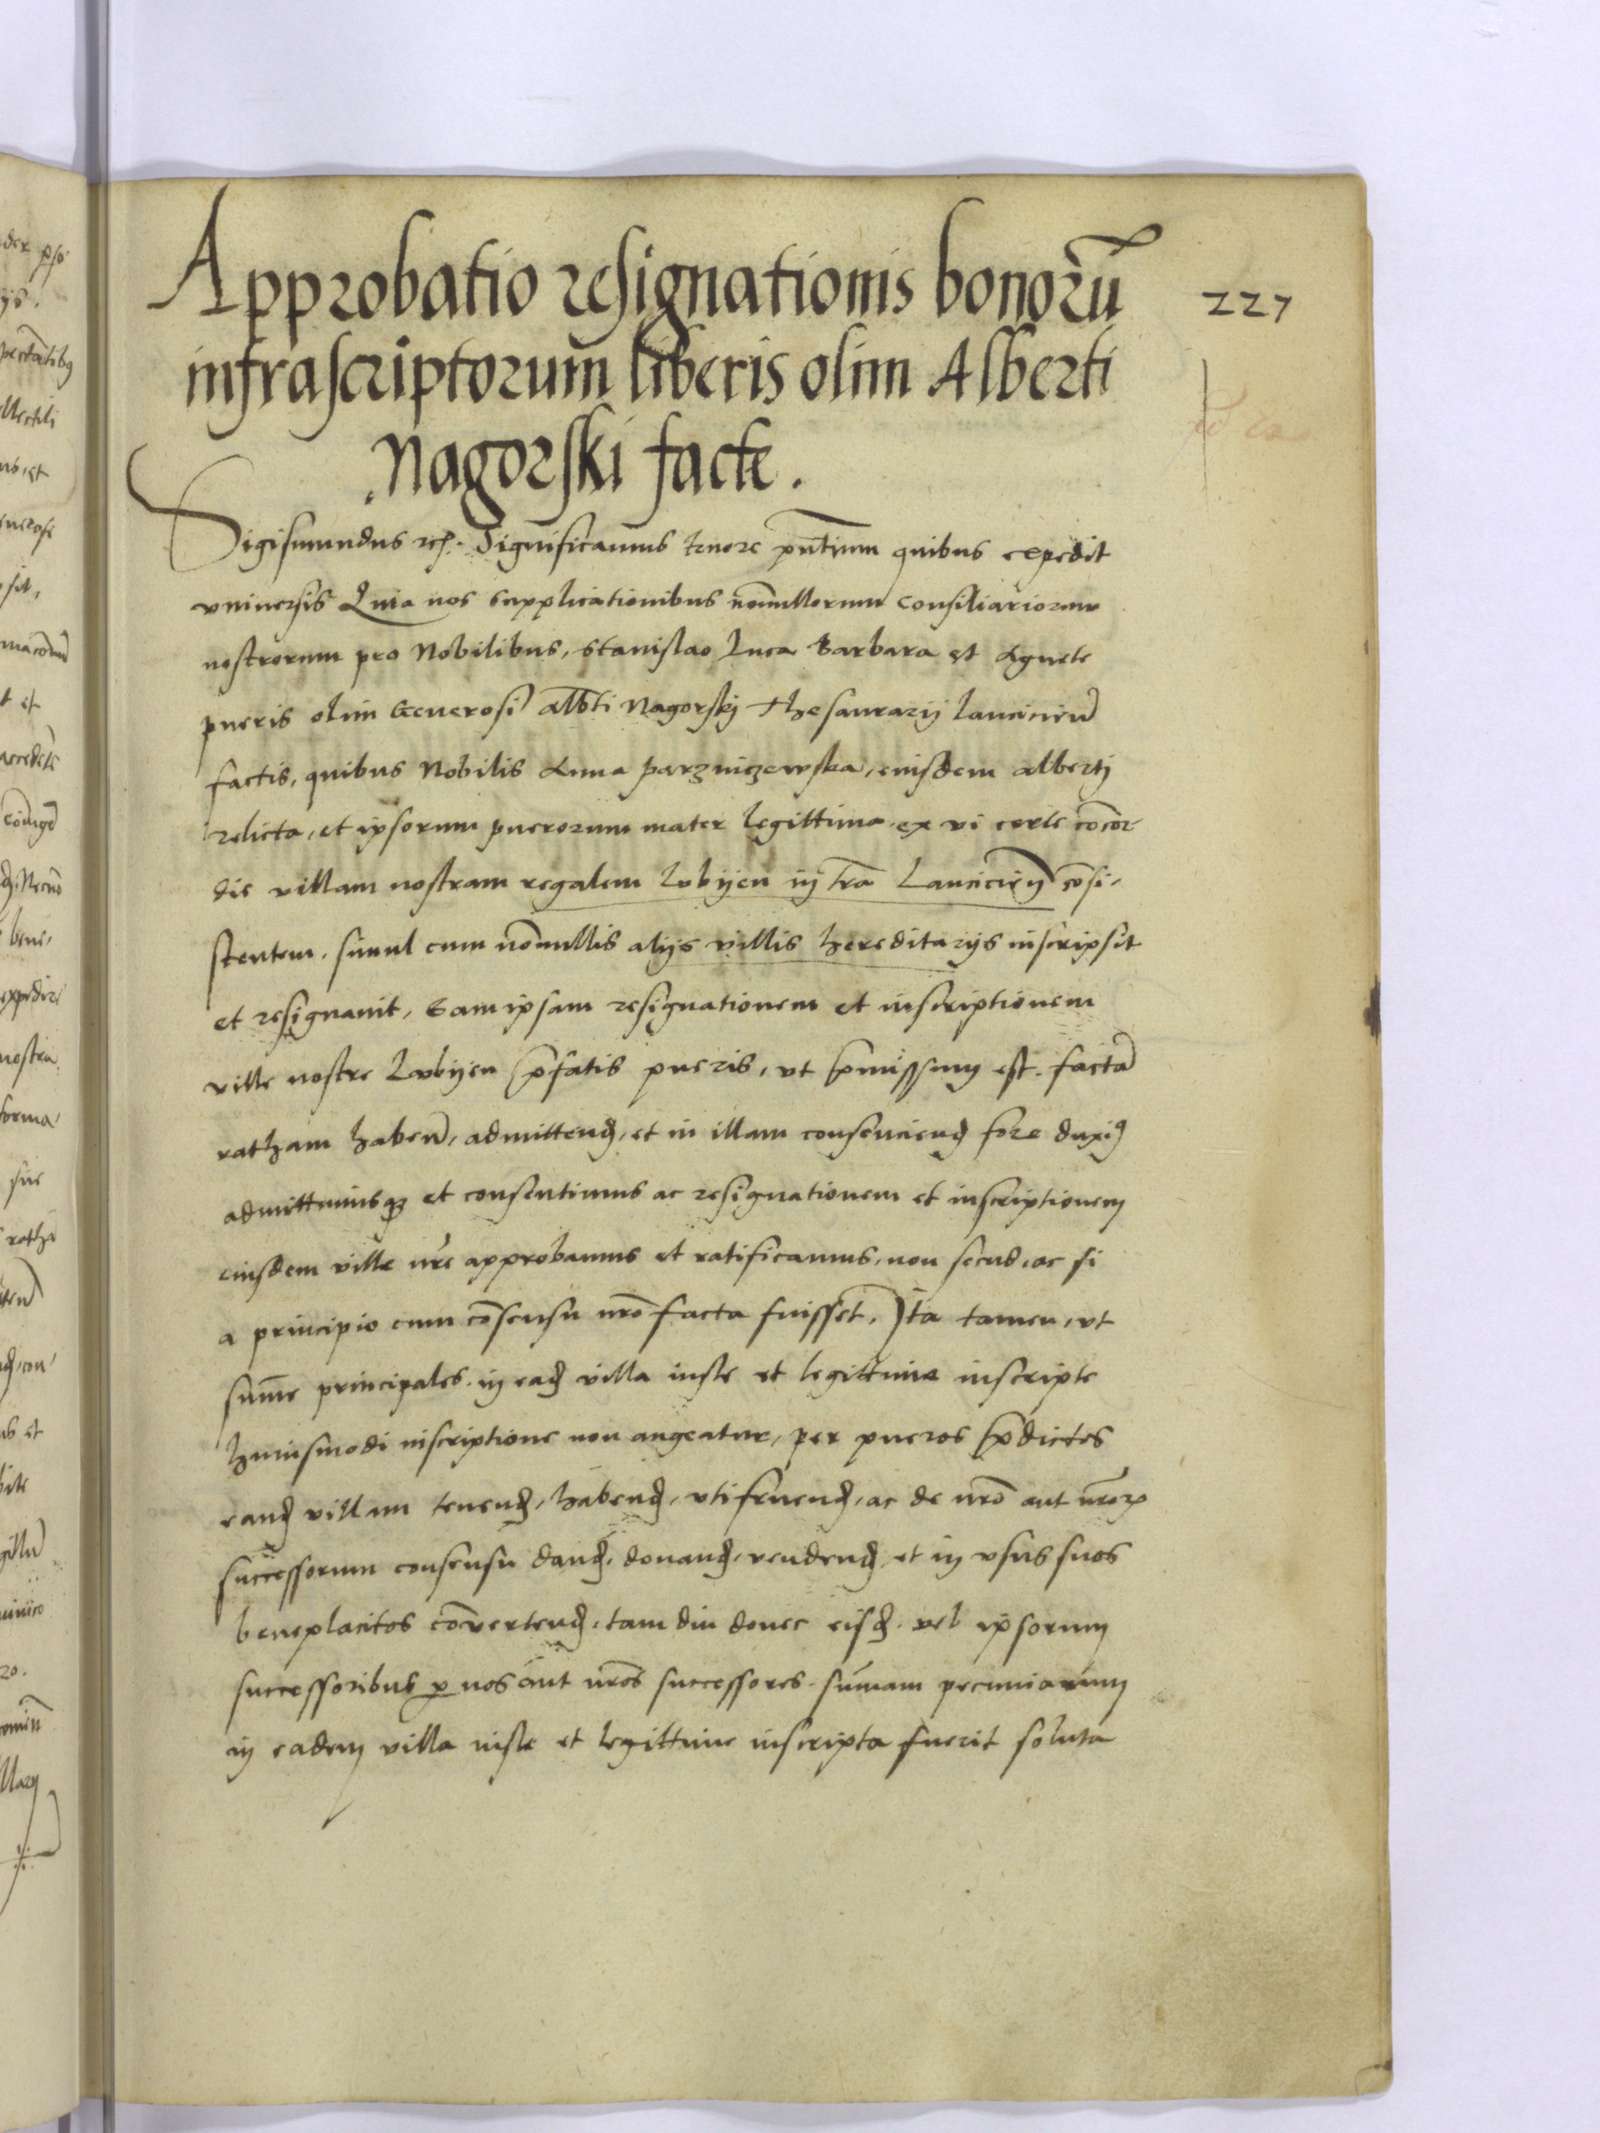 Approbatio resignationis bonorū
infrascriptorum liberis olim Alberti
Nagorski facte.
227
Sigismundus rex. Significamus tenore pñtium quibus expedit
vniuersis Quia nos supplicationibus nōnullorum consiliariorum
nostrorum pro Nobilibus, Stanislao Luca Barbara et Agnete
pueris olim Generosi Albti Nagorskj thesaurarij Lancicieñ
factis, quibus Nobilis Anna parzniczewska, eiusdem albertj
relicta, et ipsorum puerorum mater legittima, ex vi certe cōcor
die villam nostram regalem Lubyen in tra Lancicieñ cōsi-
stentem, simul cum nōnullis alijs villis hereditarijs inscripsit
et resignauit, Eam ipsam resignationem et inscriptionem
ville nostre Lubyen p̄fatis pueris, vt p̄missum est. factā
ratham habeñ, admittend, et in illam consenciend fore duxim9
admittimusqȝ et consentimus ac resignationem et inscriptionem
eiusdem ville nr̄e approbamus et ratificamus, non secus, ac si
a principio cum cōsensu nr̄o facta fuisset, Ita tamen, vt
sum̄e principales in ead villa iuste et legittime inscripte
huiusmodi inscriptione non augeatur, per pueros p̄dictos
eand villam tenend, habend, vtifruend, ac de nr̄o aut nr̄oꝝ
successorum consensu dand, donand, vendend, et in vsus suos
beneplacitos cōvertend, tam diu donec eisd vel ipsorum
successoribus ꝑ nos aut nr̄os successores summam pecuniarum
in eadem villa iuste et legittime inscripta fuerit soluta